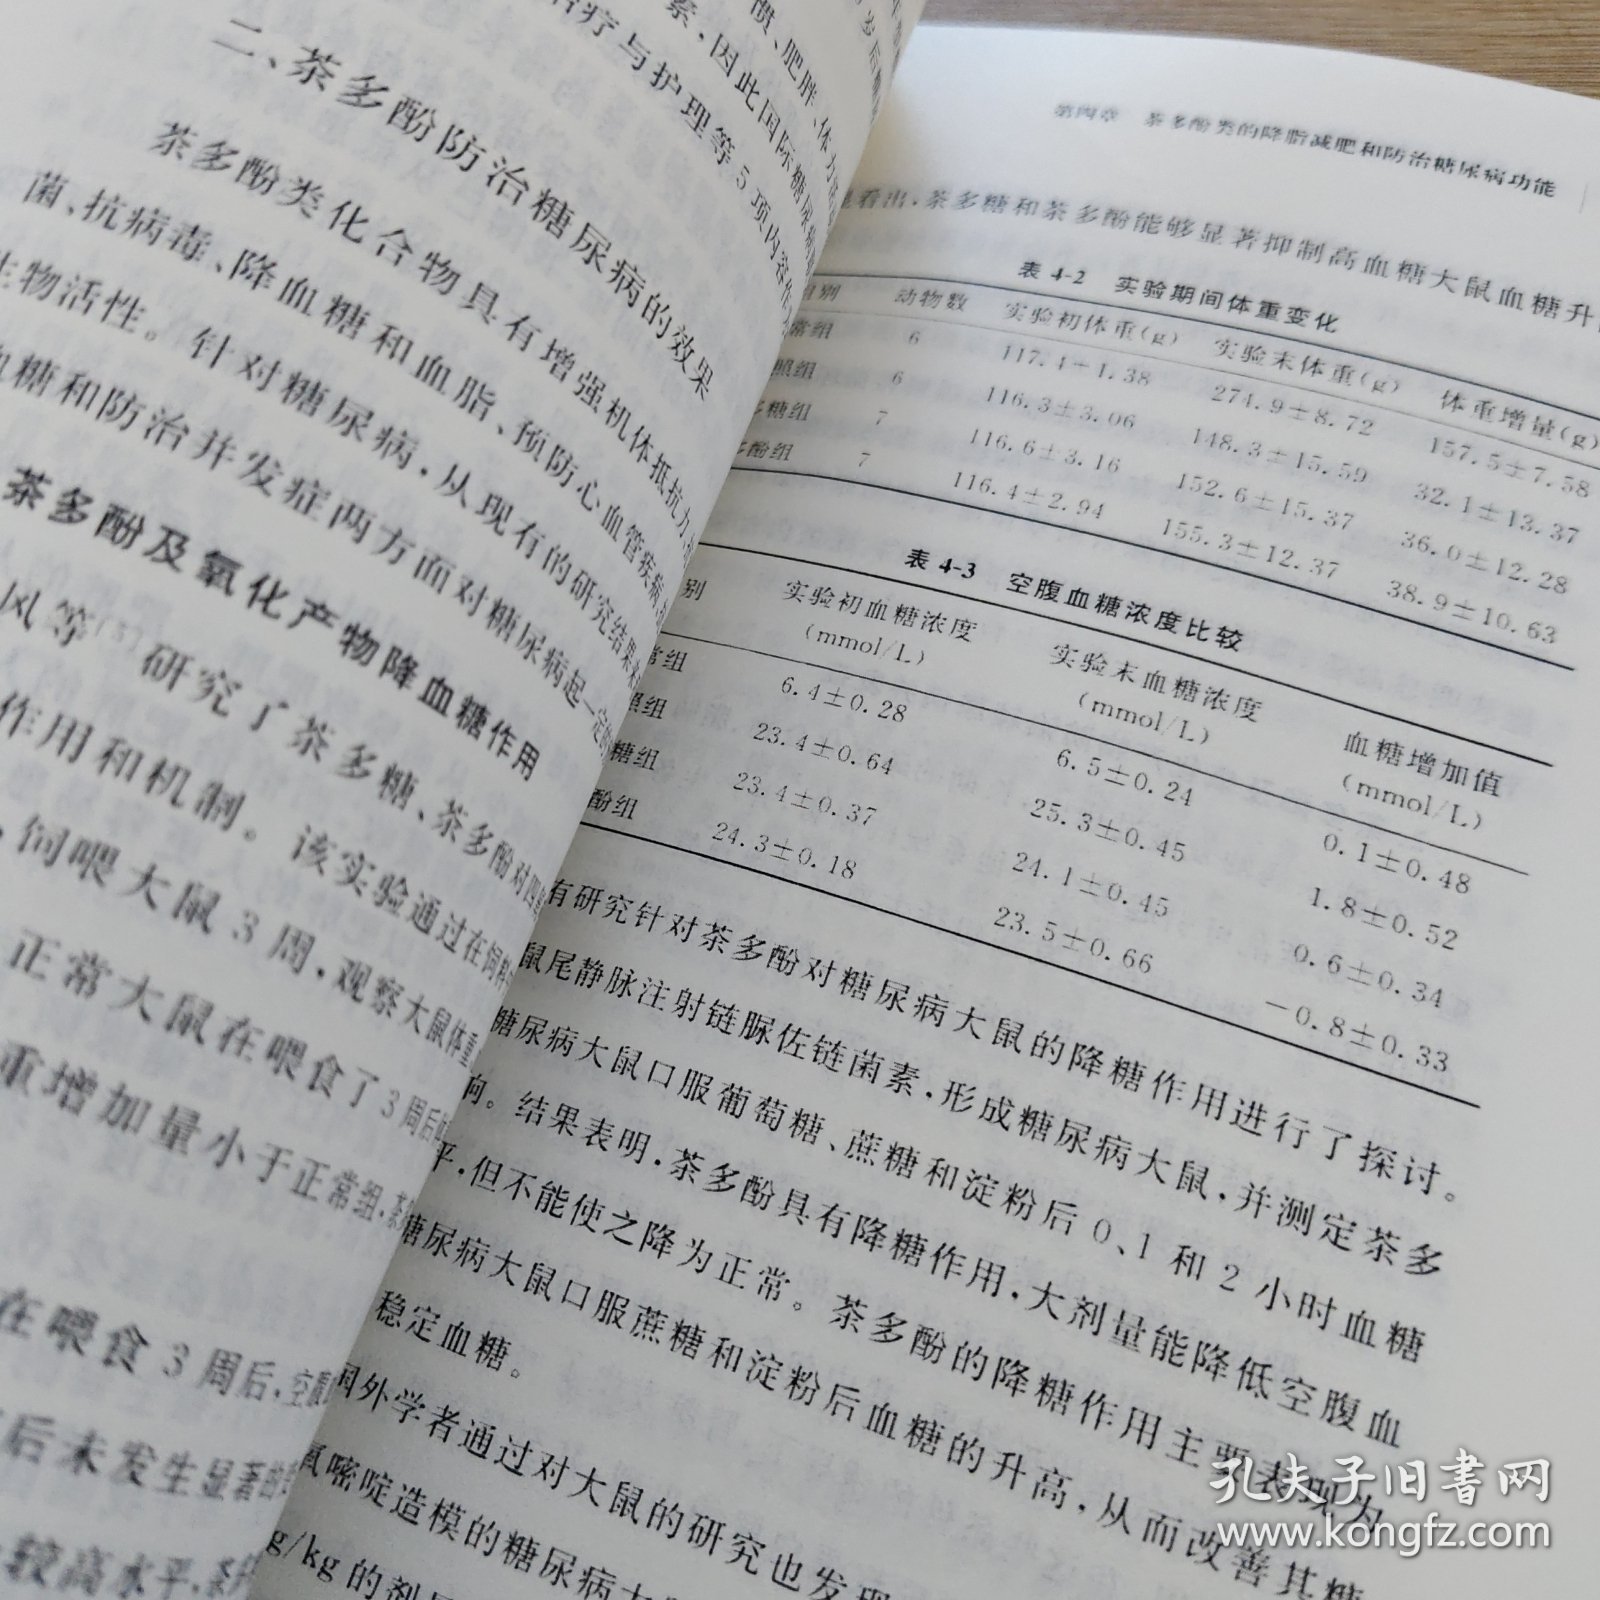 惯、肥胖、体力活
素,因此国际糖尿病
治疗与护理等5项内容作为
二、茶多酚防治糖尿病的效果
茶多酚类化合物具有增强机体抵抗力、
菌、抗病毒、降血糖和血脂、预防心血管疾病、
生物活性。针对糖尿病,从现有的研究结果
血糖和防治并发症两方面对糖尿病起一定的
茶多酚及氧化产物降血糖作用
风等 研究了茶多糖、茶多酚对四
作用和机制。该实验通过在饲料
,饲喂大鼠3周,观察大鼠体重
正常大鼠在喂食了3周后
重增加量小于正常组,
在喂食3周后,空腹
后未发生显著的
较高水平,
第四章 茶多酚类的降脂减肥和防治糖尿病功能
看出,茶多糖和茶多酚能够显著抑制高血糖大鼠血糖升
表4-2 实验期间体重变化
别 动物数 实验初体重(g) 实验末体重(g) 体重增量(g)
常组 6 117.4±1.38 274.9±8.72 157.5±7.58
照组 6 116.3±3.06 148.3±15.59 32.1±13.37
糖组 7 116.6±3.16 152.6±15.37 36.0±12.28
酚组 7 116.4±2.94 155.3±12.37 38.9±10.63
表4-3 空腹血糖浓度比较
别 实验初血糖浓度(mmol/L) 实验末血糖浓度(mmol/L) 血糖增加值(mmol/L)
常组 6.4±0.28 6.5±0.24 0.1±0.48
照组 23.4±0.64 25.3±0.45 1.8±0.52
糖组 23.4±0.37 24.1±0.45 0.6±0.34
酚组 24.3±0.18 23.5±0.66 -0.8±0.33
有研究针对茶多酚对糖尿病大鼠的降糖作用进行了探讨。
鼠尾静脉注射链脲佐链菌素,形成糖尿病大鼠,并测定茶多
糖尿病大鼠口服葡萄糖、蔗糖和淀粉后0、1和2小时血糖
响。结果表明,茶多酚具有降糖作用,大剂量能降低空腹血
平,但不能使之降为正常。茶多酚的降糖作用主要表现为
糖尿病大鼠口服蔗糖和淀粉后血糖的升高,从而改善其糖
稳定血糖。
国外学者通过对大鼠的研究也发现
氧嘧啶造模的糖尿病大
g/kg的剂
孔夫子旧书网
www.kongfz.com